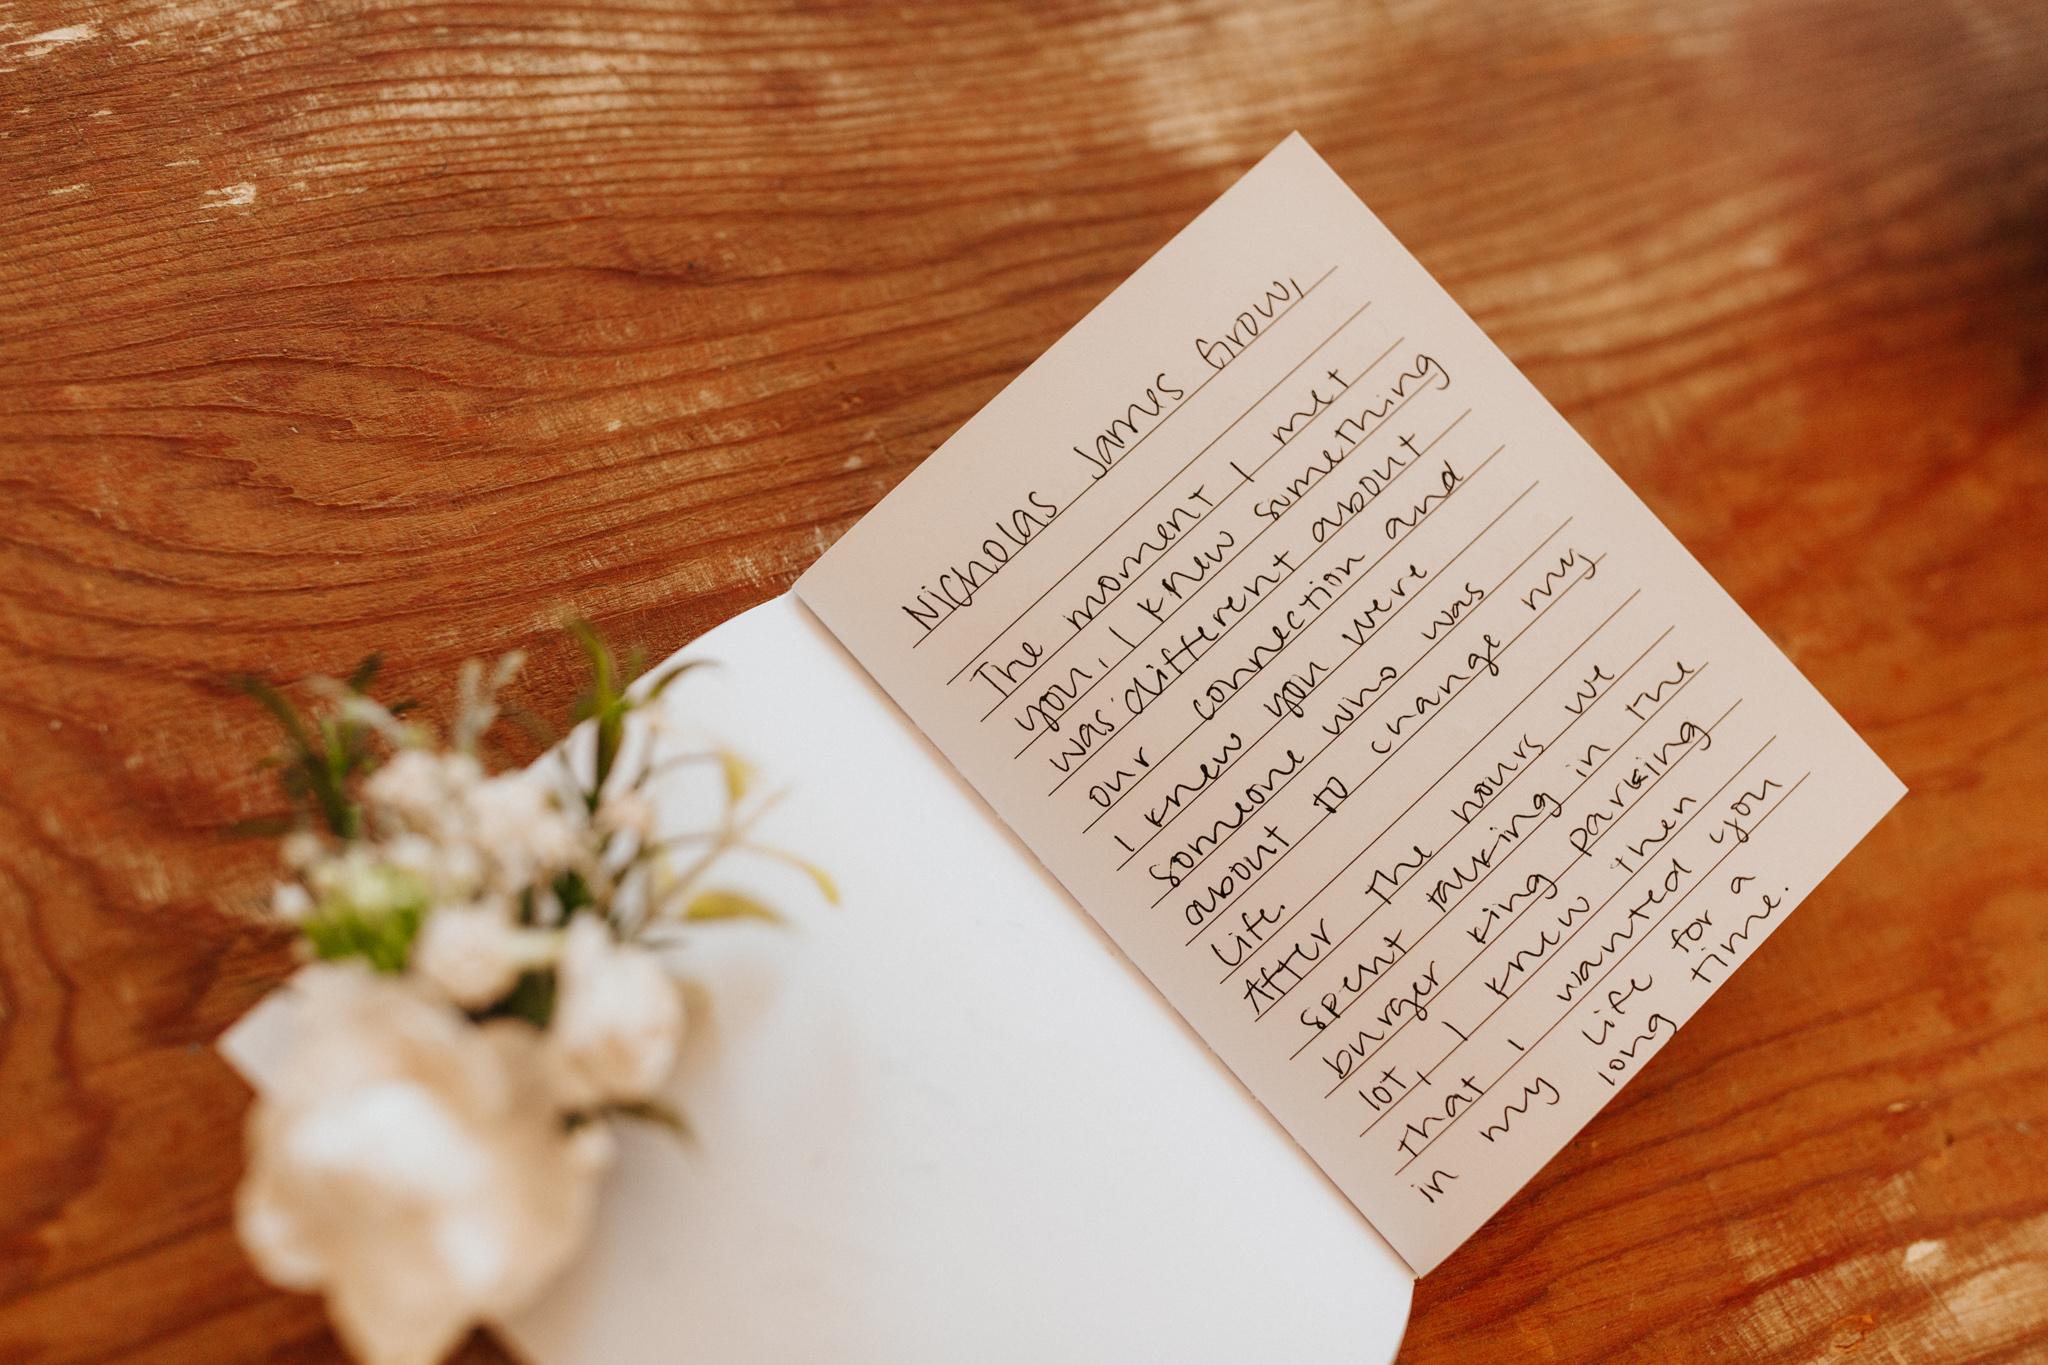 Nicholas James Grow,
The moment I met
you, I knew something
was different about
our connection and
I knew you were
someone who was
about to change my
life.
After the hours we
spent talking in the
burger king parking
lot, I knew then
that I wanted you
in my life for a
long time.